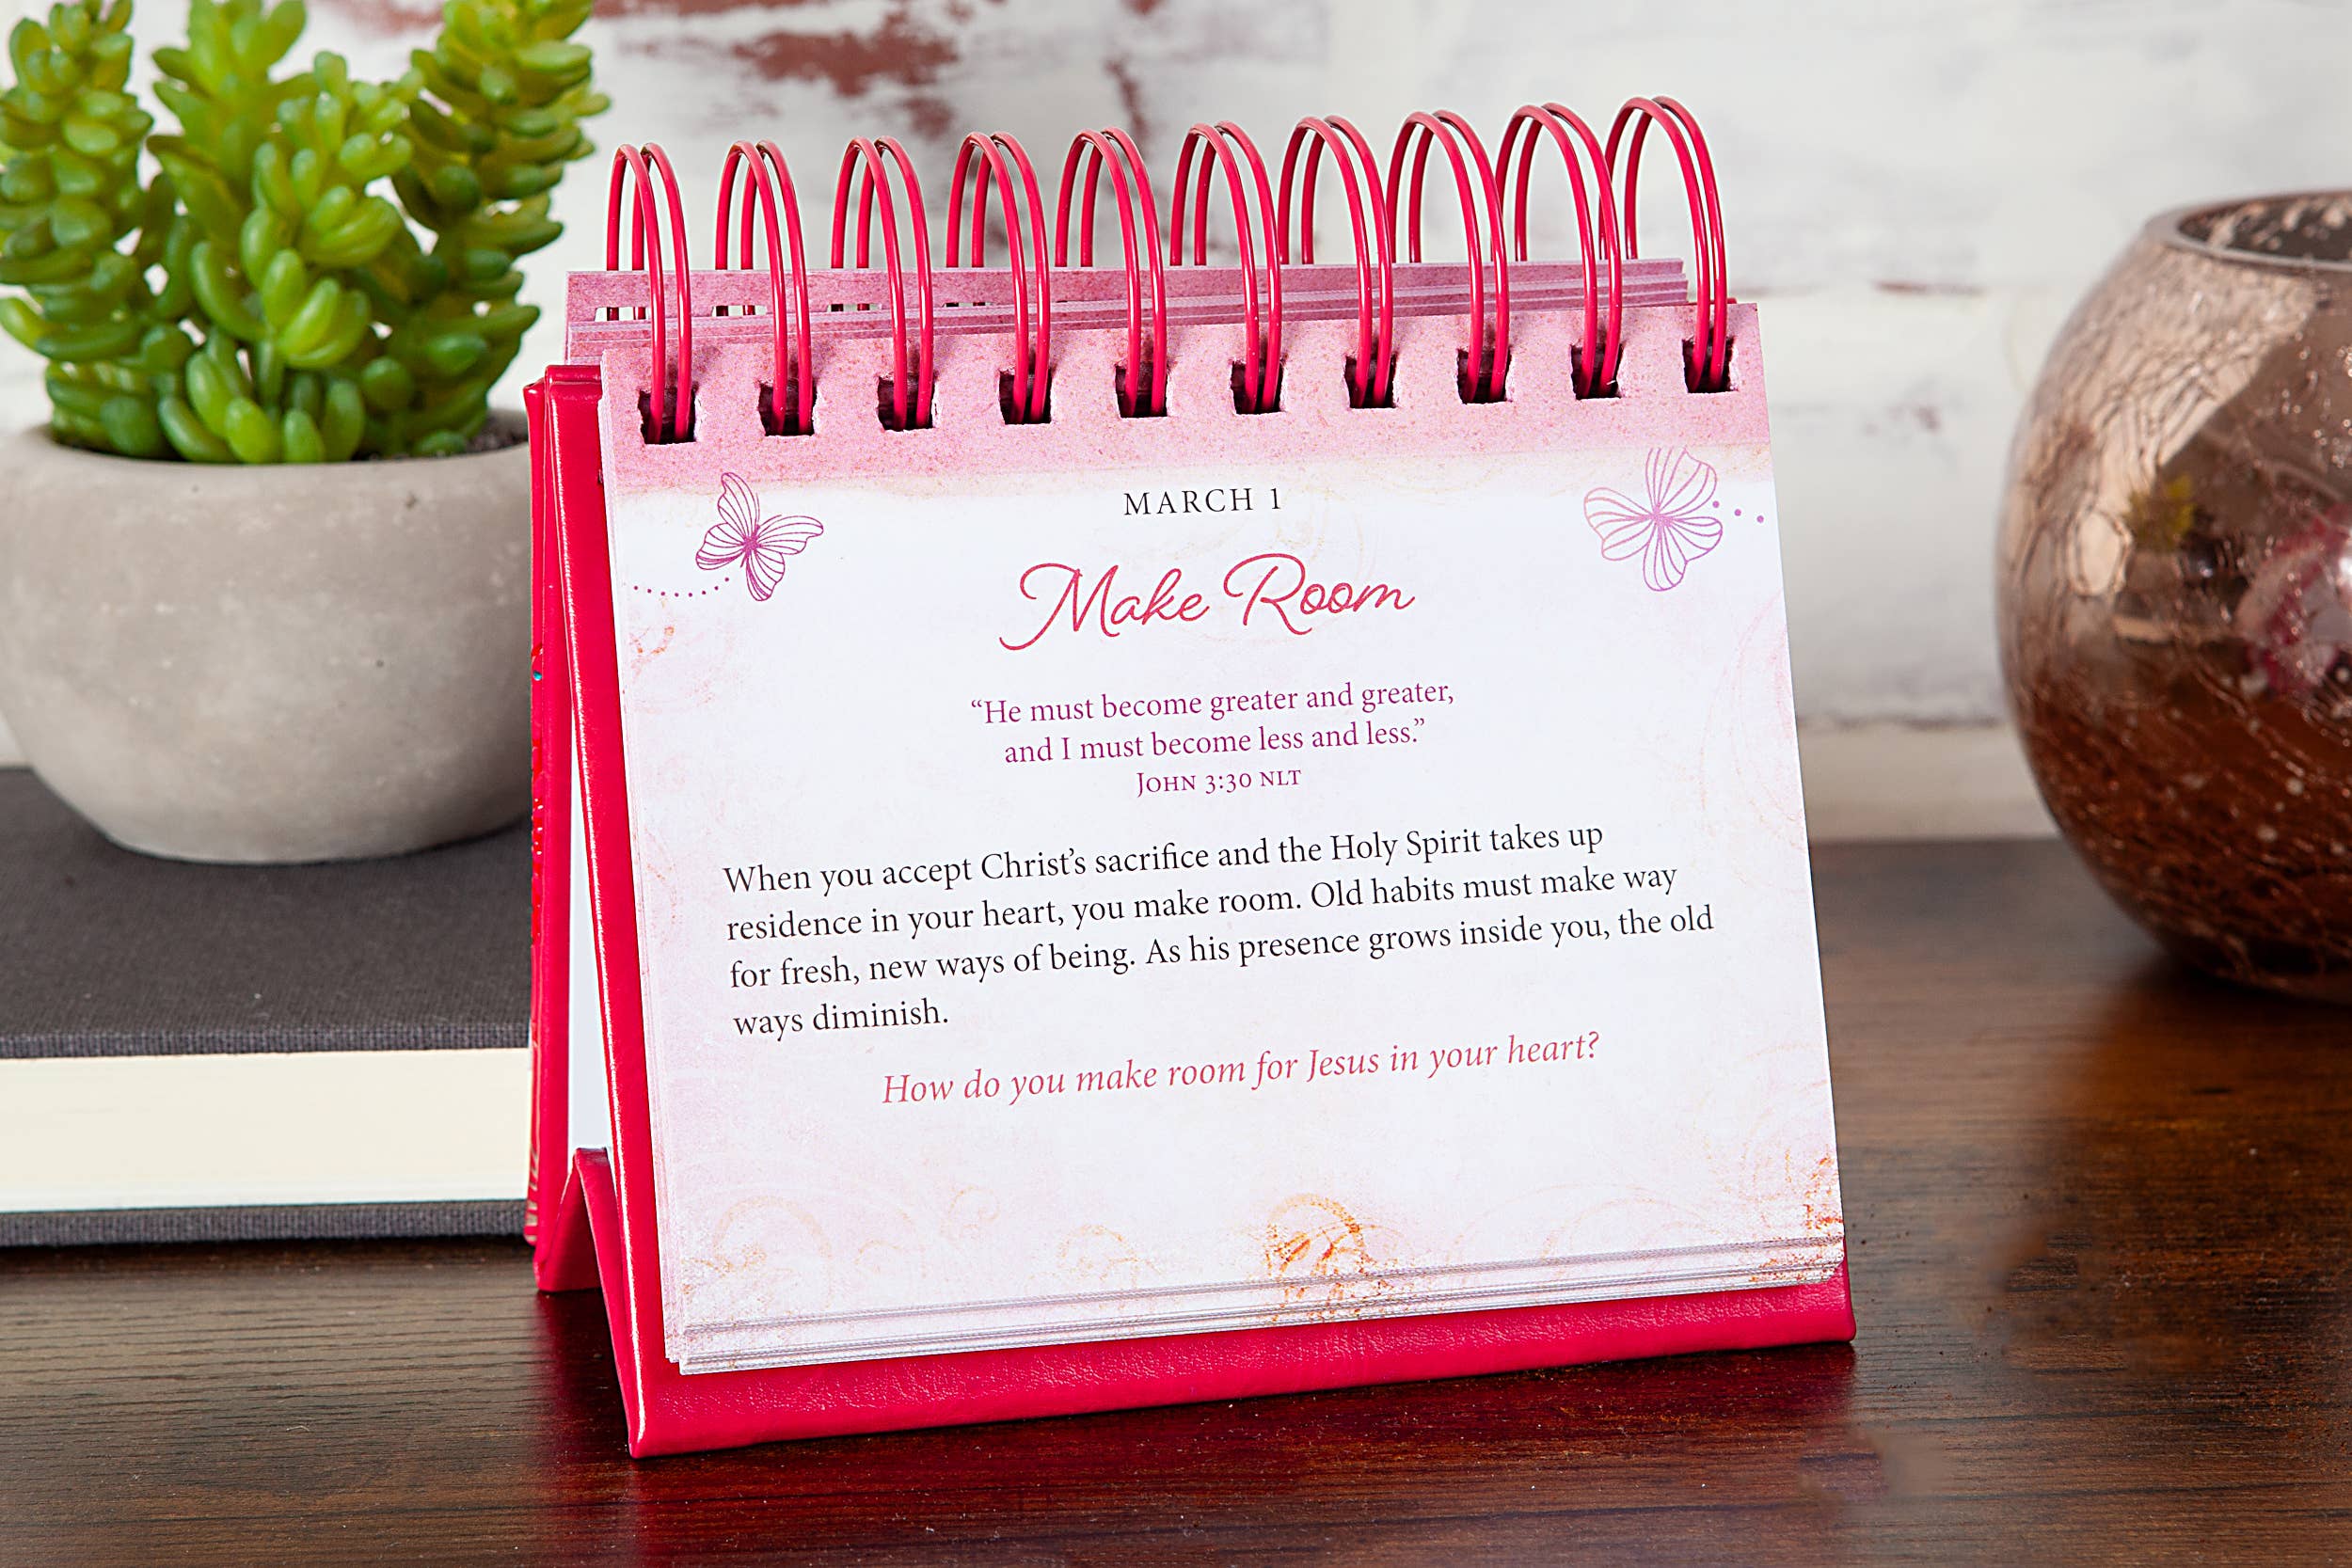 MARCH 1
Make Room
“He must become greater and greater,
and I must become less and less.”
John 3:30 NLT
When you accept Christ’s sacrifice and the Holy Spirit takes up
residence in your heart, you make room. Old habits must make way
for fresh, new ways of being. As his presence grows inside you, the old
ways diminish.
How do you make room for Jesus in your heart?